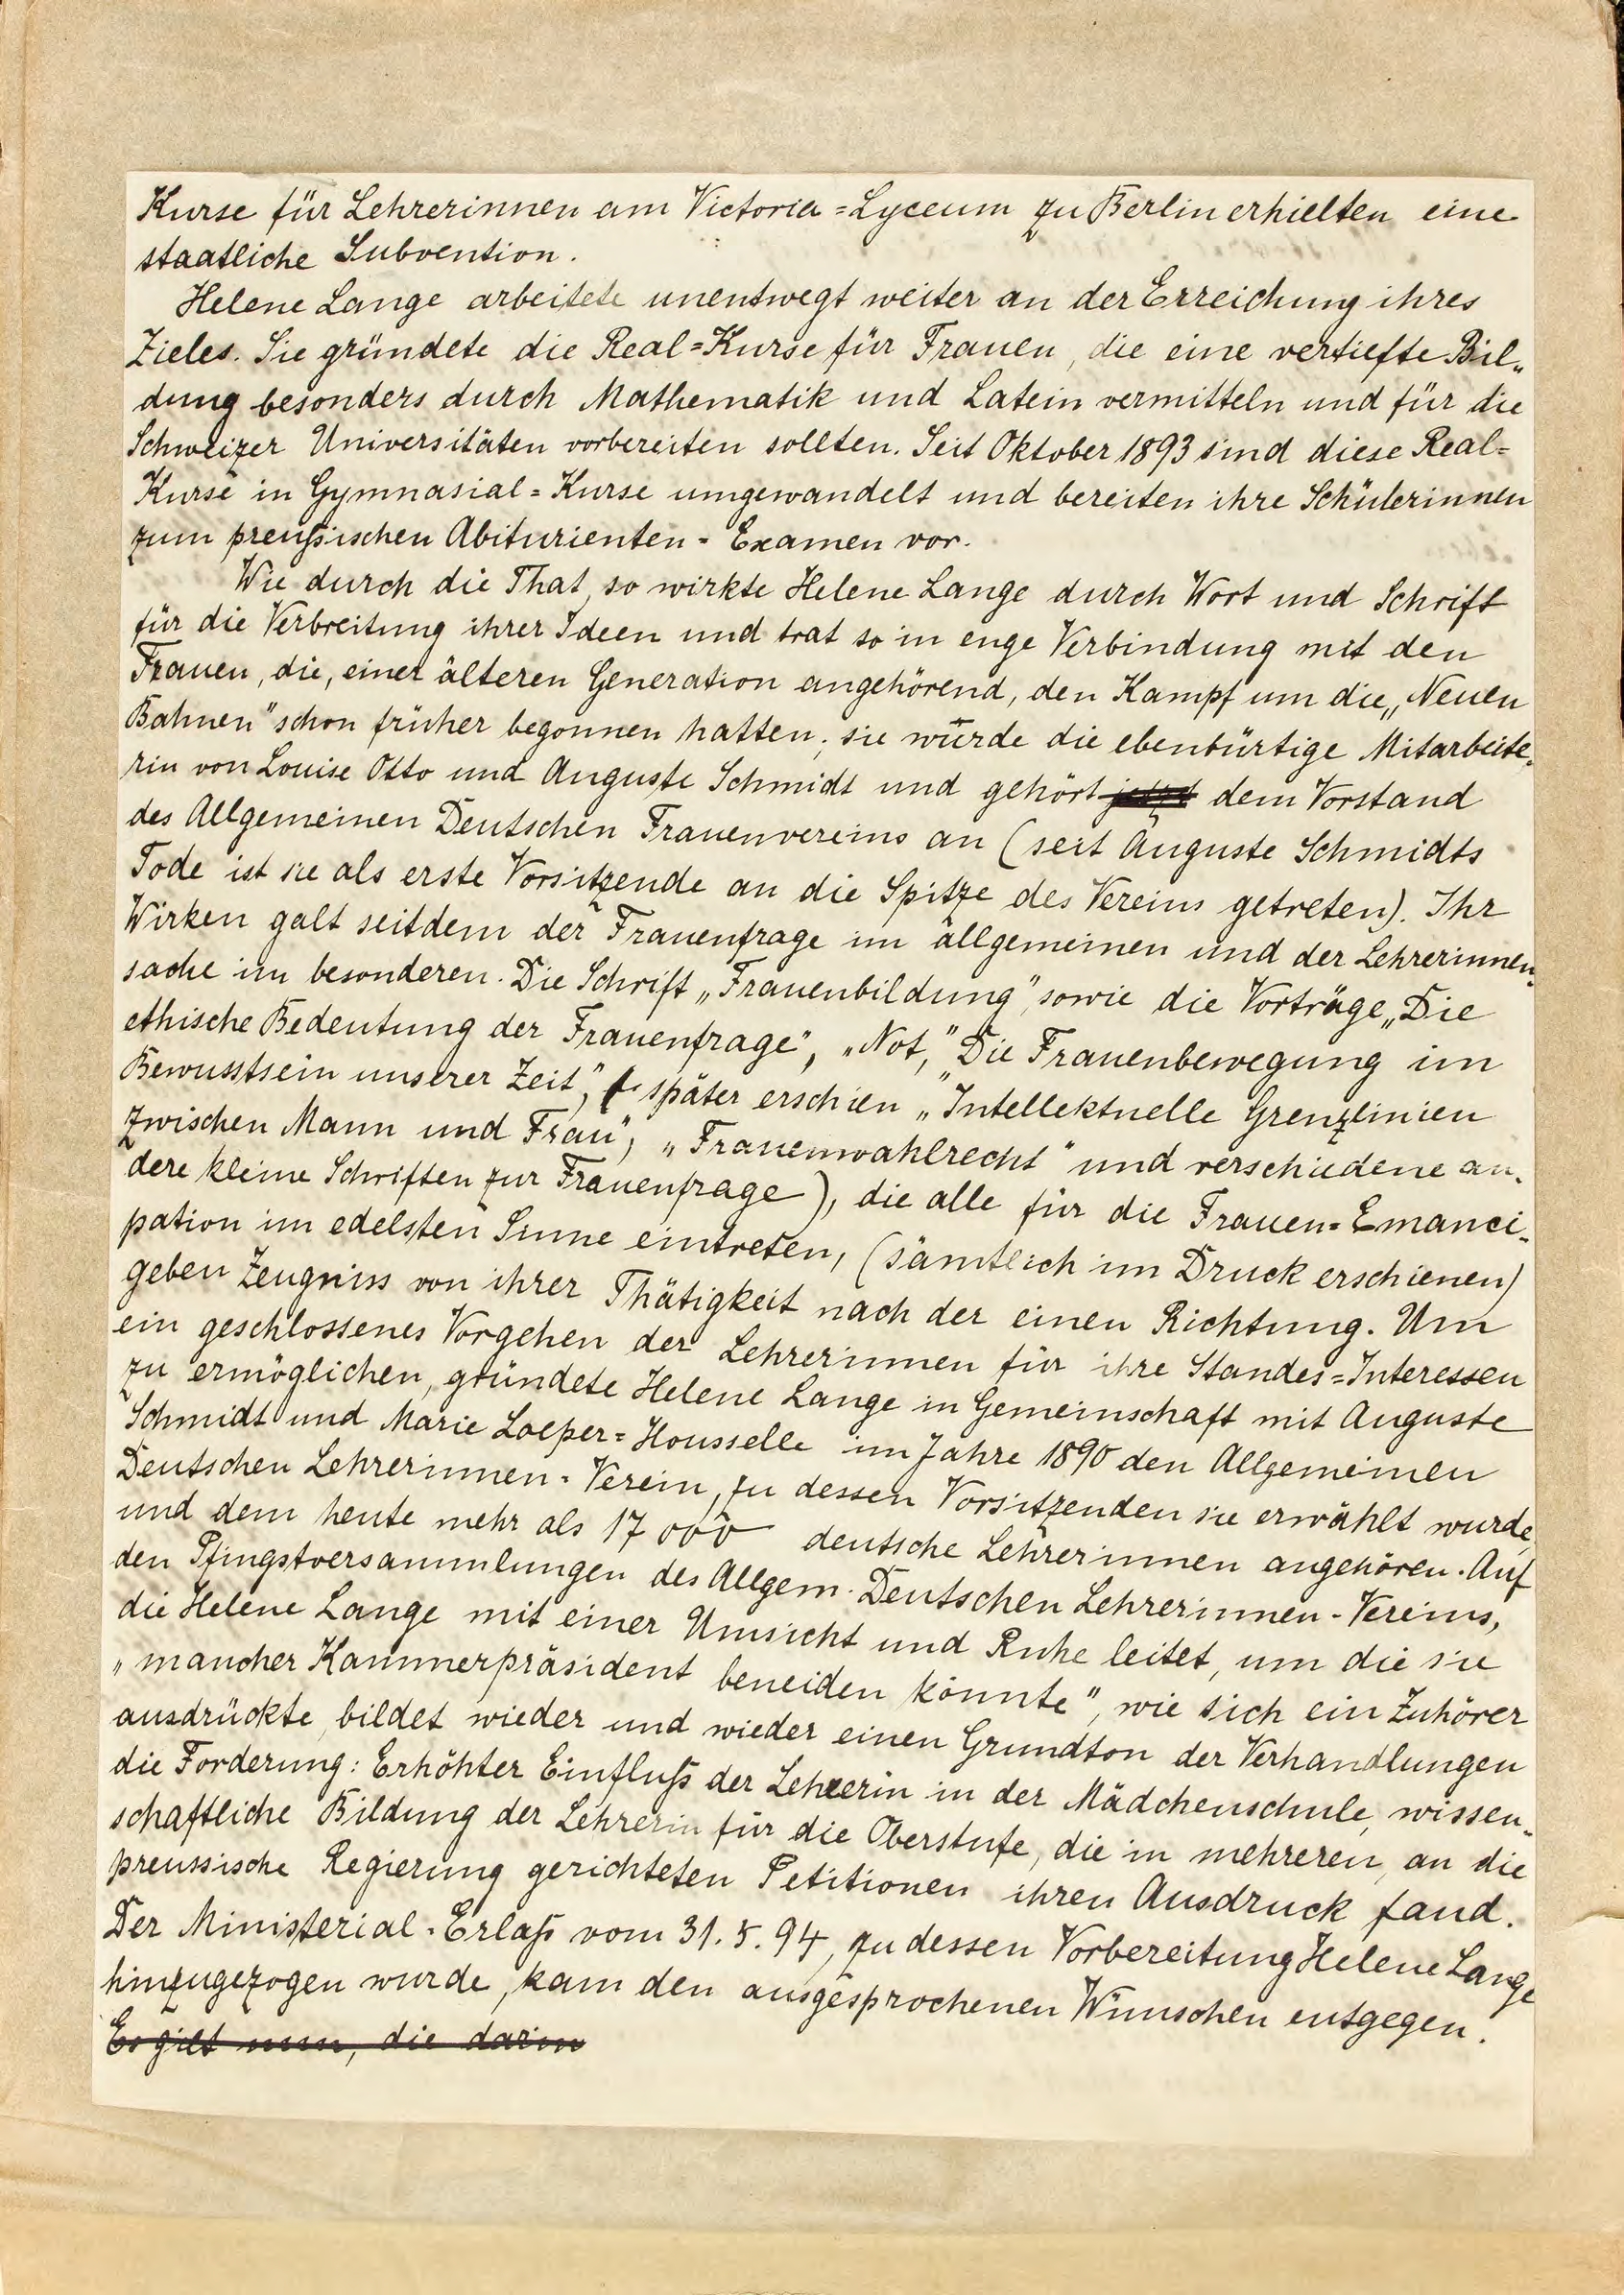 Kurse für Lehrerinnen am Victoria=Lyceum zu Berlin erhielten eine
staatliche Subvention.
Helene Lange arbeitete unentwegt weiter an der Erreichung ihres
Zieles. Sie gründete die Real=Kurse für Frauen, die eine vertiefte Bil„
dung besonders durch Mathematik und Latein vermitteln und für die
Schweizer Universitäten vorbereiten sollten. Seit Oktober 1893 sind diese Real=
Kurse in Gymnasial=Kurse umgewandelt und bereiten ihre Schülerinnen
zum preußischen Abiturienten-Examen vor.
Wie durch die That, so wirkte Helene Lange durch Wort und Schrift
für die Verbreitung ihrer Ideen und trat so in enge Verbindung mit den
Frauen, die, einer älteren Generation angehörend, den Kampf um die „Neuen
Bahnen" schon früher begonnen hatten; sie würde die ebenbürtige Mitarbeite„
rin von Louise Otto und Auguste Schmidt und gehört jetzt dem Vorstand
des Allgemeinen Deutschen Frauenvereins an (seit Auguste Schmidts
Tode ist sie als erste Vorsitzende an die Spitze des Vereins getreten). Ihr
Wirken galt seitdem der Frauenfrage im allgemeinen und der Lehrerinnen„
sache im besonderen. Die Schrift „Frauenbildung", sowie die Vorträge „Die
ethische Bedeutung der Frauenfrage", „Not," „Die Frauenbewegung im
Bewusstsein unserer Zeit", (später erschien „Intellektuelle Grenzlinien
zwischen Mann und Frau", „Frauenwahlrecht" und verschiedene an„
dere kleine Schriften zur Frauenfrage), die alle für die Frauen=Emanci„
pation im edelsten Sinne eintreten, (sämtlich im Druck erschienen)
geben Zeugniss von ihrer Thätigkeit nach der einen Richtung. Um
ein geschlossenes Vorgehen der Lehrerinnen für ihre Standes=Interessen
zu ermöglichen, gründete Helene Lange in Gemeinschaft mit Auguste
Schmidt und Marie Loeper=Housselle im Jahre 1890 den Allgemeinen
Deutschen Lehrerinnen-Verein, zu dessen Vorsitzenden sie erwählt wurde,
und dem heute mehr als 17 000 deutsche Lehrerinnen angehören. Auf
den Pfingstversammlungen des Allgem. Deutschen Lehrerinnen-Vereins,
die Helene Lange mit einer Umsicht und Ruhe leitet, um die sie
„mancher Kammerpräsident beneiden könnte", wie sich ein Zuhörer
ausdrückte, bildet wieder und wieder einen Grundton der Verhandlungen
die Forderung: Erhöhter Einfluß der Lehrerin in der Mädchenschule, wissen„
schaftliche Bildung der Lehrerin für die Oberstufe, die in mehreren, an die
preussische Regierung gerichteten Petitionen ihren Ausdruck fand.
Der Ministerial-Erlaß vom 31.5.94, zu dessen Vorbereitung Helene Lange
hinzugezogen wurde, kam den ausgesprochenen Wünschen entgegen.
Es gilt nun, die darin